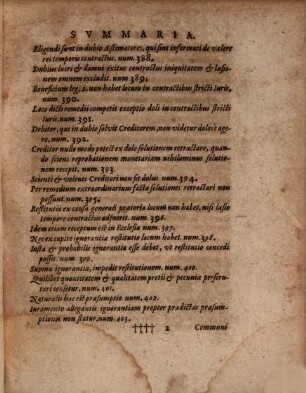 SVMMARIA.
Eligendi sunt in dubio Æstimatores, qui sint informati de valore
rei tempore contractus. num. 388.
Dubius lucri & damni exitus contractus iniquitatem & læsio-
nem omnem excludit. num. 389.
Beneficium leg. 2. non habet locum in contractibus stricti iuris,
num. 390.
Loco dicti remedij competit exceptio doli in contractibus stricti
iuris. num. 391.
Debitor, qui in dubio solvit Creditorem, non videtur dolose age-
re. num. 392.
Creditor nulle modo potest ex dolo solutionem retractare, quan-
do sciens reprobationem monetariam nihilominus solutio-
nem recepit. num. 393.
Scienti & volenti Creditori non fit dolus. num. 394.
Per remedium extraordinarium facta solutiones retractari non
possunt. num. 395.
Restitutio ex causa generali prætoria locum non habet, nisi læsio
tempore contractus adfuerit. num. 396.
Idem etiam receptum est in Ecclesia. num. 397.
Nec ex capite ignorantiæ restitutio locum habet. num. 398.
Iusta & probabilis ignorantia esse debet, vt restitutio concedi
possit. num. 399.
Supena ignorantia, impedit restitutionem. num. 400.
Quilibet quantitatem & qualitatem pretij & pecuniæ perscru-
teri censetur. num. 401.
Naturalis hæc est præsumptio num. 402.
Iuramento allegantis ignorantiam propter prædictas præsum-
ptiones non statur. num. 403.
2 Commoni